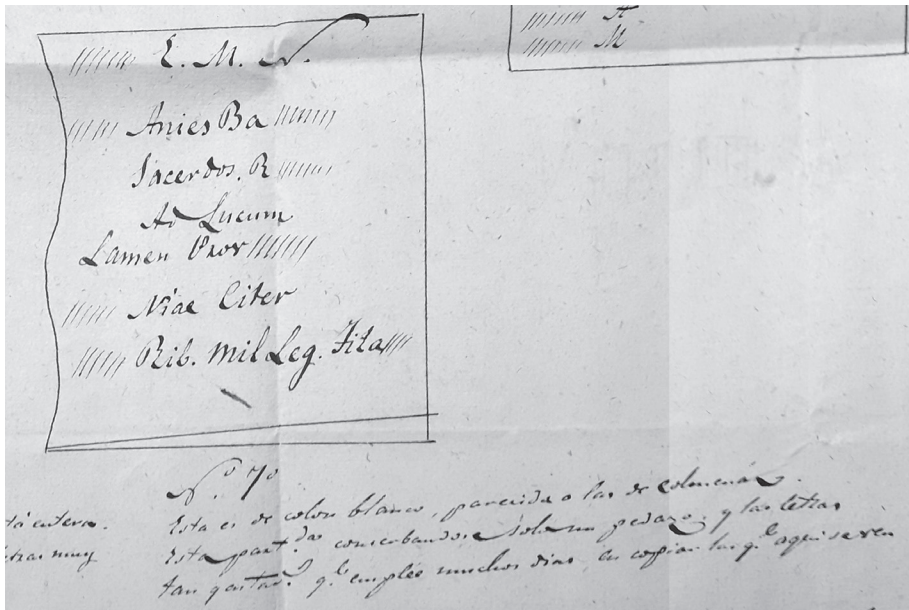 E. M. N.
Anies Ba
Sacerdos. R
Ad Lucum
Lamen Uxor
Niae Citer
Rib. Mil Leg. Fita
A
M
N.º 7º
Esta es de color blanco, parecida a las de colmenar.
Esta part.da conserbandose solo un pedazo, y las letras
tan gastad.s q.e emplee muchos dias en copiar las q.e aqui se ven
tá entera.
etras muy